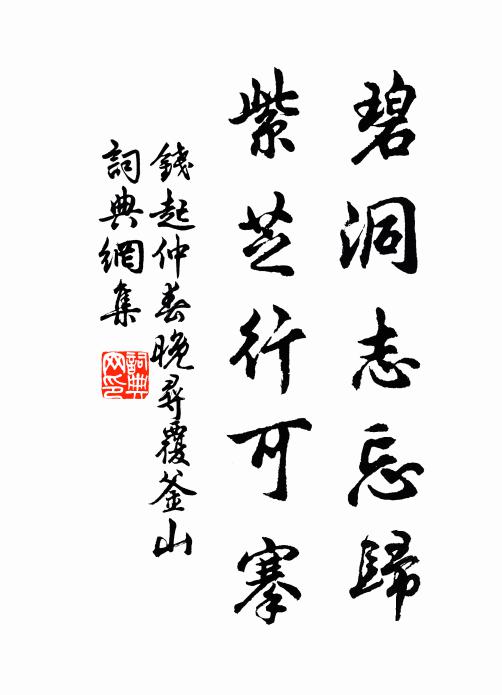 碧洞志忘歸
紫芝行可搴
錢起仲春晚尋覆釜山
詞典網集
詞典網印